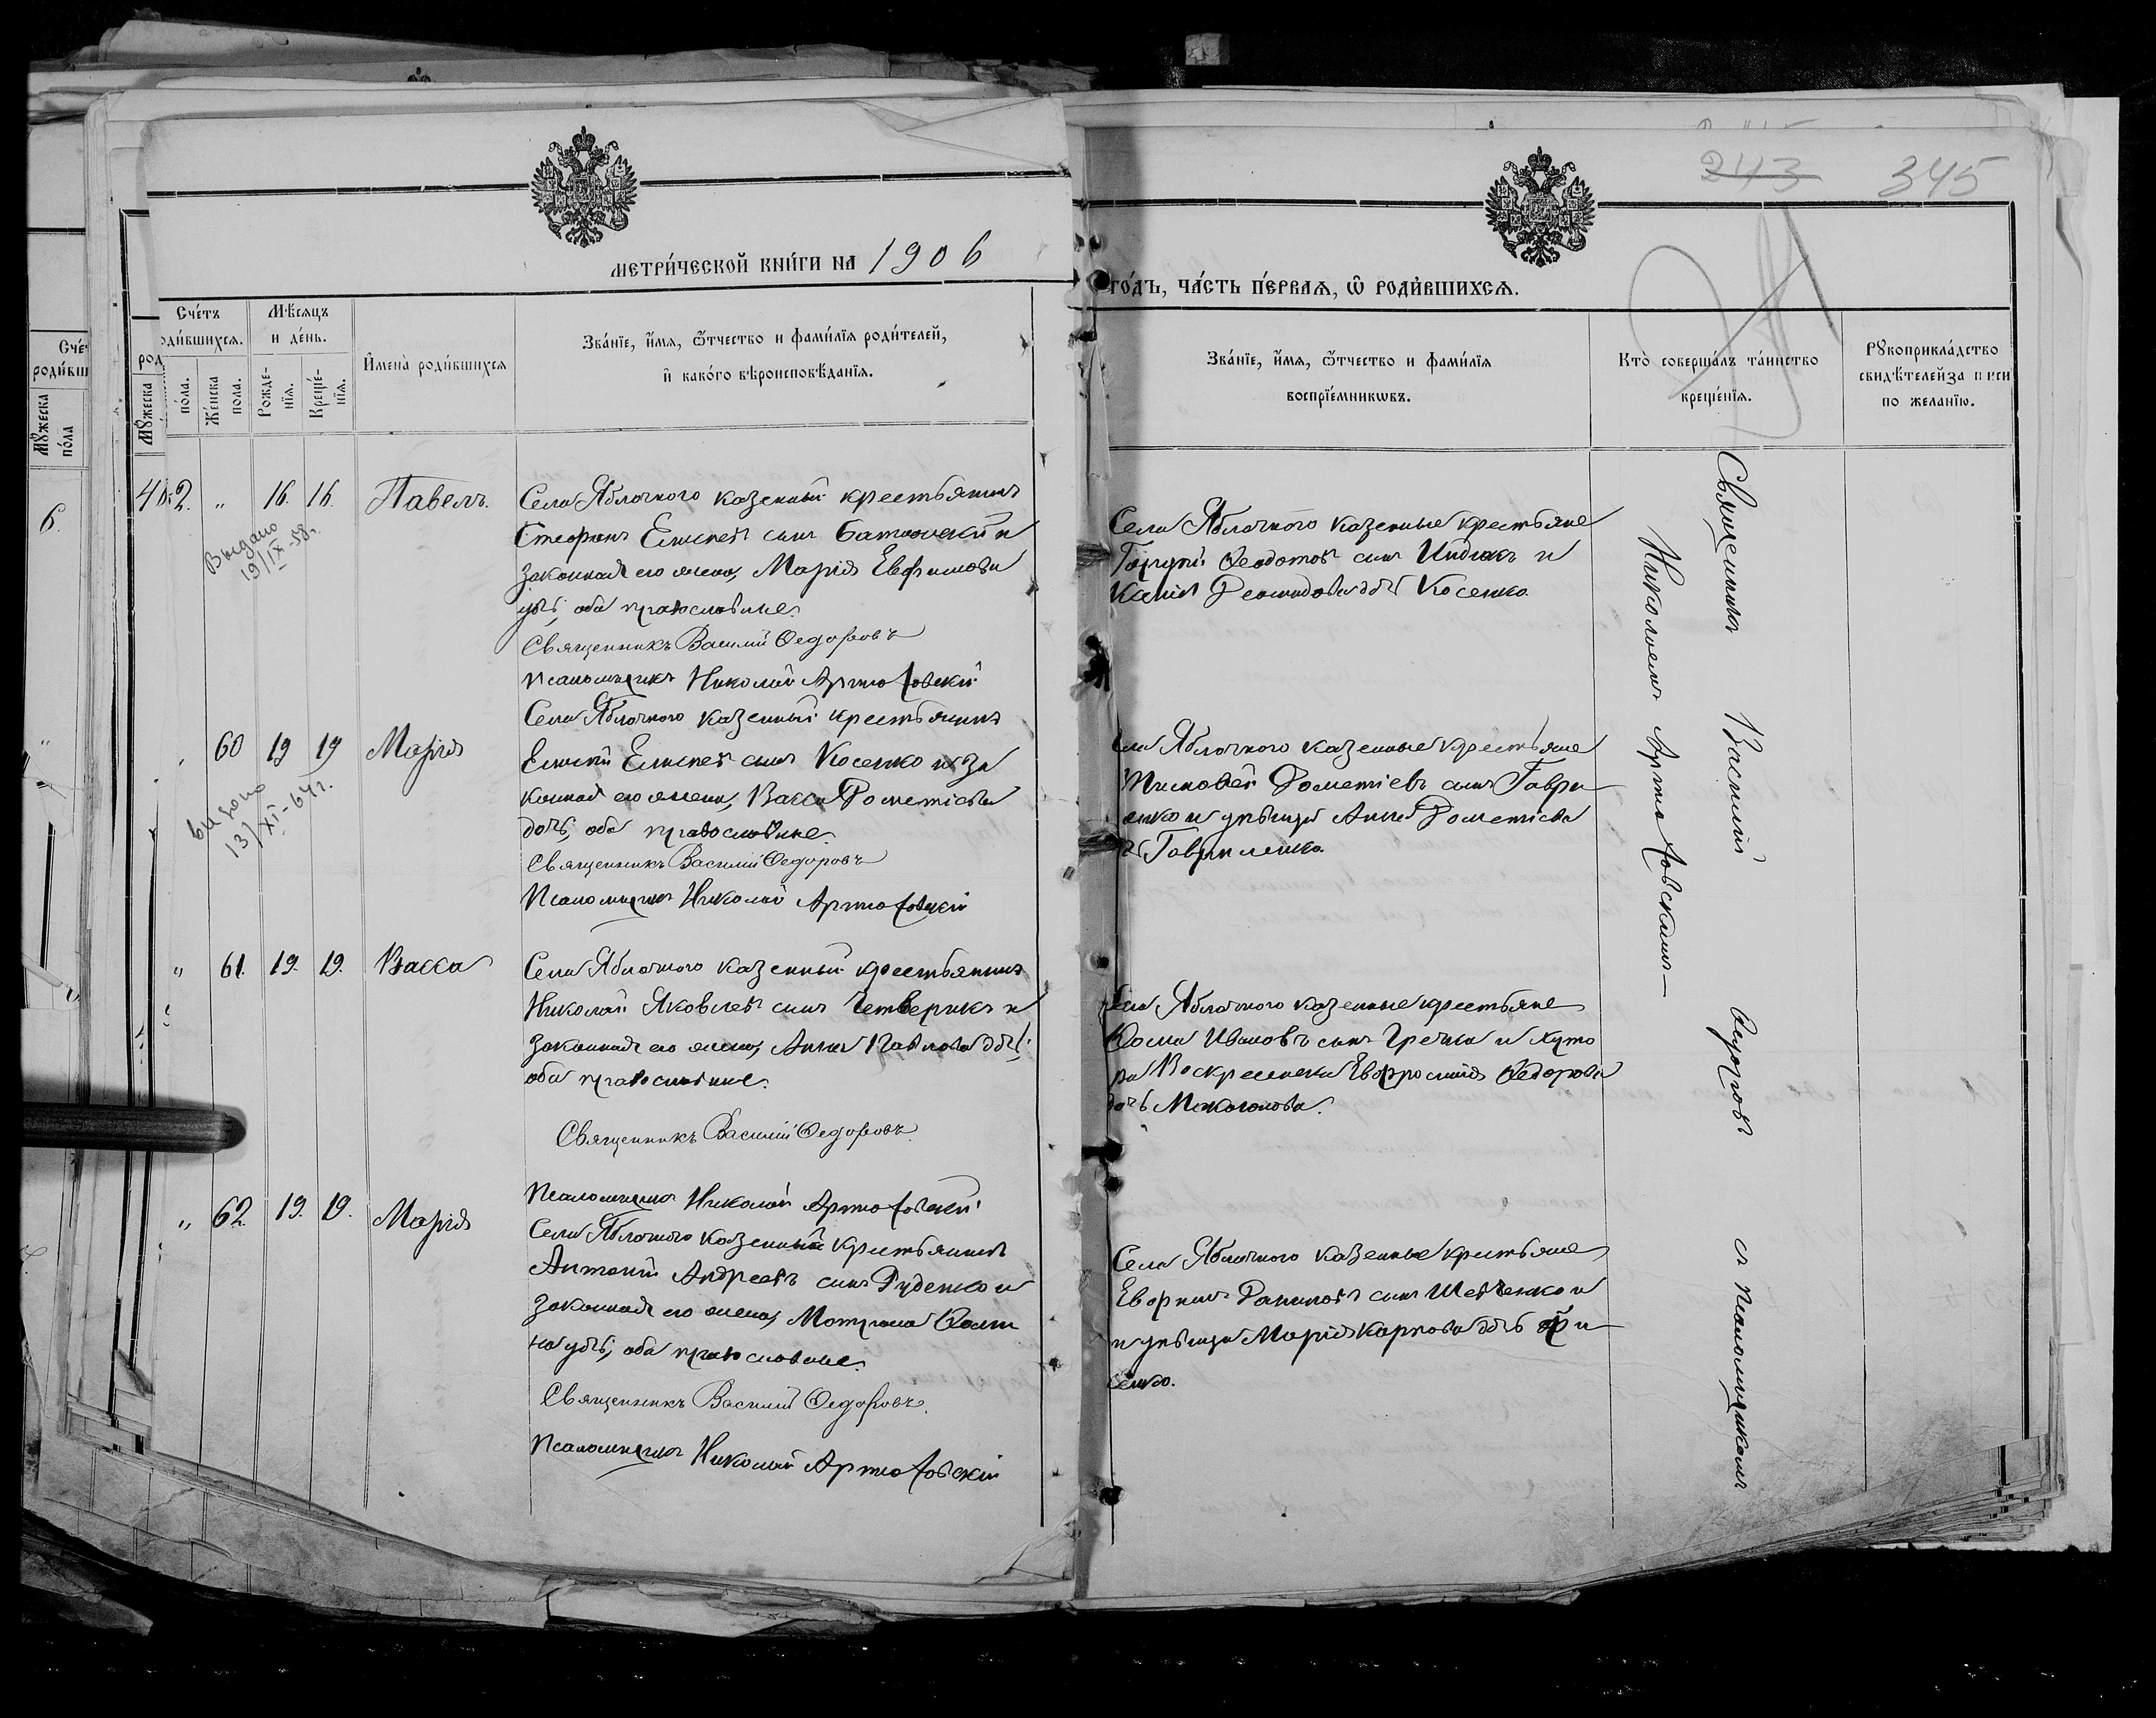 243 345
МЕТРИ́ЧЕСКОЙ КНИ́ГИ НА 1906
ГО́ДЪ, ЧА́СТЬ ПЕ́РВАѦ, Ѡ РОДИ́ВШИХСѦ.
Сче́тъ
роди́вш
Мꙋ́жеска
по́ла
6.
род
Мꙋ́жеска
Сче́тъ
оди́вшихсѧ.
по́ла.
Же́нска
по́ла.
Мѣ́сяцъ
и де́нь.
Рожде-
нїѧ.
Креще́-
нїѧ.
Имена̀ роди́вшихсѧ
Зва́нїе, и́мѧ, ѻ́тчество и фами́лїѧ роди́телей,
и како́го вѣроисповѣ́данїѧ.
Зва́нїе, и́мѧ, ѻ́тчество и фами́лїѧ
воспрїе́мникѡвъ.
Кто̀ соверша́лъ та́инство
креще́нїѧ.
Рꙋкоприкла́дство
свидѣ́телей
по жела́нїю.
2. " 16. 16. Павелъ.
Выдано
19/IX-58г.
Села Яблочного казенный крестьянинъ
Стефанъ Елисеевъ сынъ и
законная его жена, Марія Евфимова
дчь, оба православные.
Священникъ Василій Ѳедоровъ
Псаломщикъ Николай Артюховскій
Села Яблочного казенные крестьяне
Ѳеодотовъ сынъ Индикъ и
Косенко
60 19 19 Марія
выдано
13/XI-64г.
Села Яблочного казенный крестьянинъ
Елисей Елисеевъ сынъ Косенко и за
конная его жена, Васса Дометіева
дочь, оба православные.
Священникъ Василій Ѳедоровъ
Псаломщикъ Николай Артюховскій
ела Яблочного казенные крестьяне
Тимовей Дометіевъ сынъ Гаври
енко и дѣвица Анна Дометіева
Гавриленко
" 61. 19. 19. Васса
Села Яблочного казенный крестьянинъ
Николай Яковлевъ сынъ Четверикъ и
законная его жена, Анна Павлова дчь;
оба православные.
Священникъ Василій Ѳедоровъ
Псаломщикъ Николай Артюховскій
Села Яблочного казенные крестьяне
Ѳома Ивановъ сынъ Гречка и хуто
ра Воскресенска Евфросинія Ѳедорова
дочь Мокогонова.
" 62. 19. 19. Марія
Села Яблочного казенный крестьянинъ
Антоній Андреевъ сынъ Руденко и
законная его жена, Мотрона Ѳоми
на дчь, оба православные.
Священникъ Василій Ѳедоровъ.
Псаломщикъ Николай Артюховскій
Села Яблочного казенные крестьяне
Даниловъ сынъ Шевченко и
и дѣвица Марія Карпова дчь
сенко.
Священникъ Василій Ѳедоровъ съ псаломщикомъ
Николаемъ Артюховскимъ